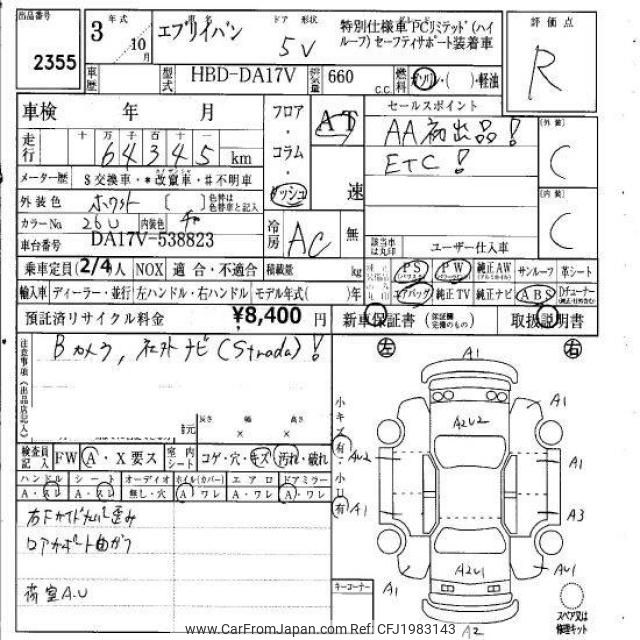 出品番号
2355
3 年式
10月
車名
エブリイバン
ドア 形状
5V
グレード
特別仕様車 PCリミテッド(ハイルーフ)セーフティサポート装着車
評価点
R
車歴
型式
HBD-DA17V
排気量
660 c.c.
燃料
ガソリン・( )・軽油
車検 年 月
走行
十 万 千 百 十 一
6 4 3 4 5 km
メーター歴
$交換車・*改竄車・#不明車
外装色
ホワイト
[ ]
色替は色替車と記入
カラーNo
26U
内装色
車台番号
DA17V-538823
フロア・コラム・ダッシュ
AT
速
冷房
AC
無
セールスポイント
AA初出品!
ETC!
該当車は丸印
ユーザー仕入車
[外装]
C
[内装]
C
乗車定員 2/4人
NOX 適合・不適合
積載量 kg
PS
(パワステ)
PW
(パワーウィンド)
純正AW
(アルミホイール)
サンルーフ
革シート
輸入車
ディーラー・並行
左ハンドル・右ハンドル
モデル年式( )年
エアバッグ
純正TV
純正ナビ
ABS
Dチューナー
預託済リサイクル料金
¥8,400 円
新車保証書
(保証継完備のもの)
取扱説明書
注意事項(出品店記入)
Bカメラ, 社外ナビ(Strada)!
長さ 幅 高さ
× ×
検査員記入
FW
A・X要ス
室内シート
コゲ・穴・キズ
汚れ・破れ
ハンドル
シート
オーディオ
ホイル(カバー)
エアロ
ドアミラー
A・スレ
A・スレ
無し・穴
A・ワレ
A・ワレ
A・ワレ
ロアサポート曲がり
荷室A.U
小キズ(有)・小凹(有)
左
右
A1
A1
A1
A2U2
AU2
A1
A1
A3
A2U1
AU1
A1
A2
キーコーナー
スペア又は修理キット
www.CarFromJapan.com - CFJ1983143